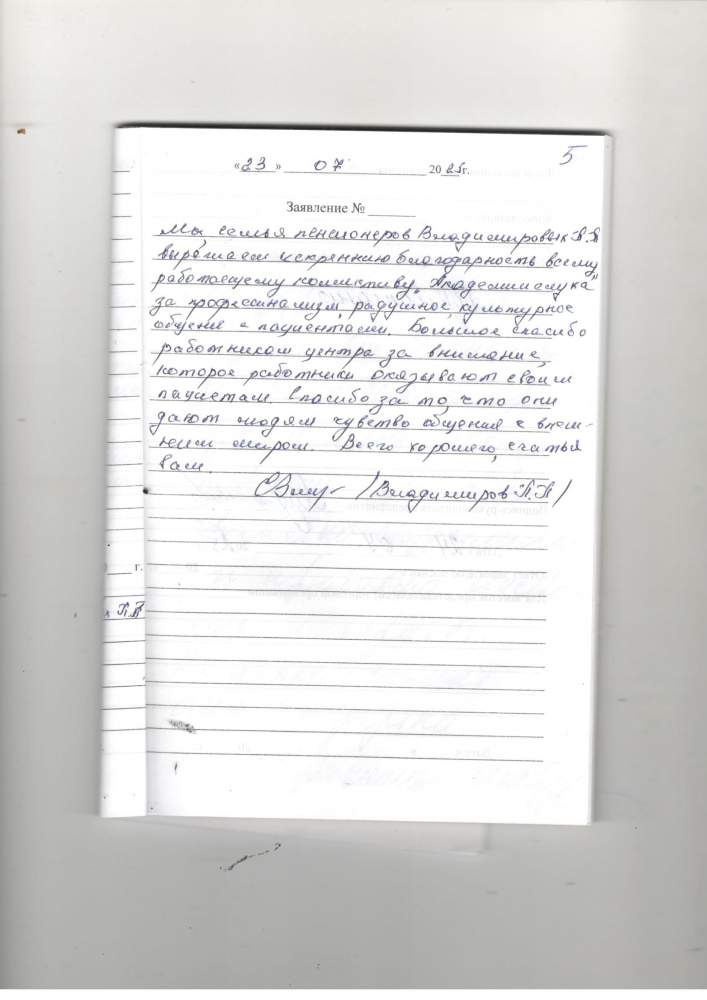 5
«23» 07 2025г.
Заявление №
Мы, семья пенсионеров Владимировых П.П
выражаем искреннию благодарность всему
работающему коллективу "Академии слуха"
за професинализм, радушное, культурное
общение с пациентами. Большое спасибо
работникам центра за внимание,
которое работники оказывают своим
пациетам. Спасибо за то, что они
дают людям чувство общения с внеш-
неим миром. Всего хорошего, счатья
вам.
/Владимиров П.П/
г.
П.П